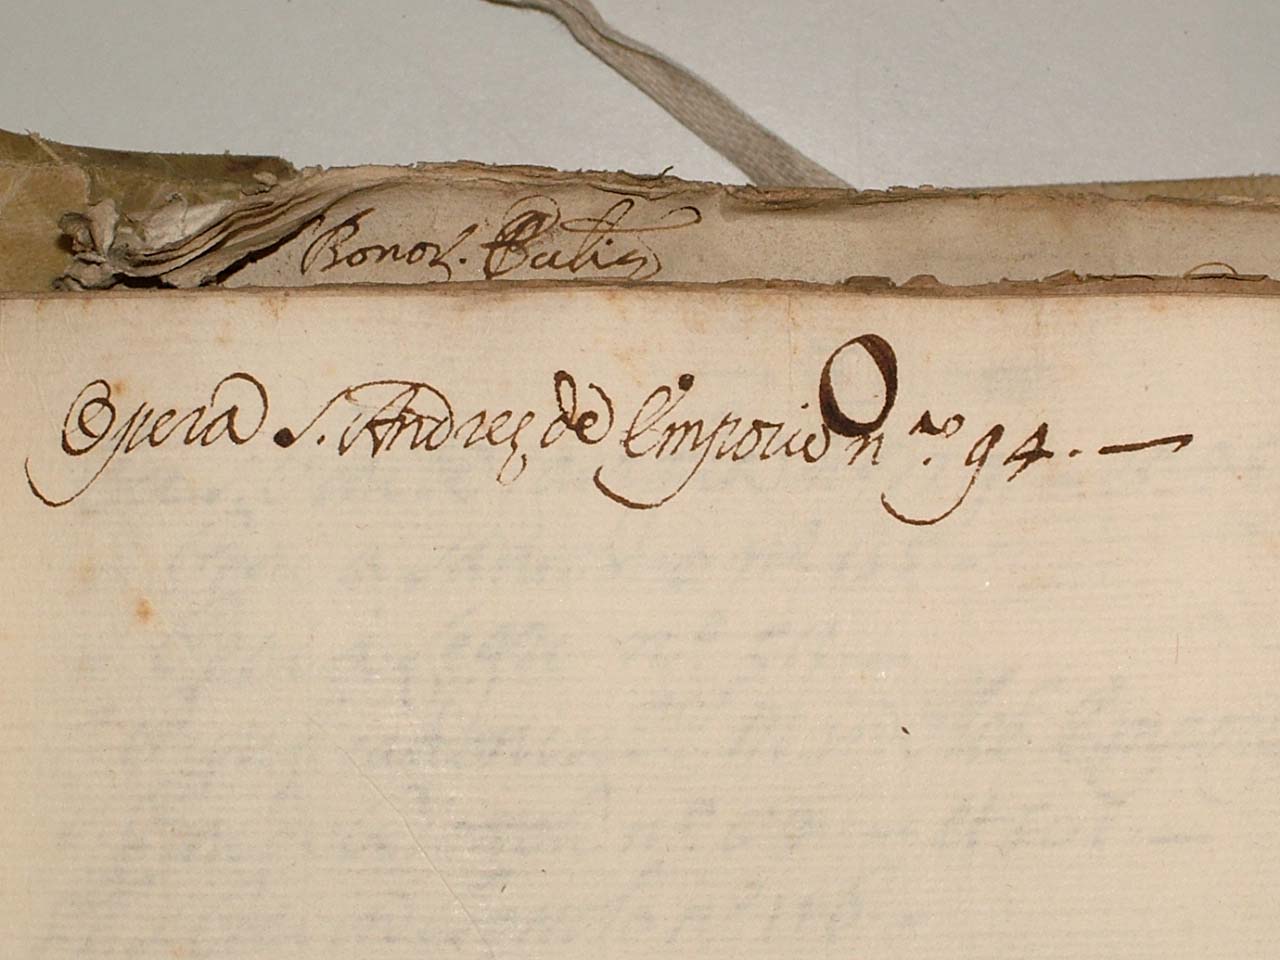 Bonor. Balis
Opera S. Andreę de Emporio n.ro 94. —